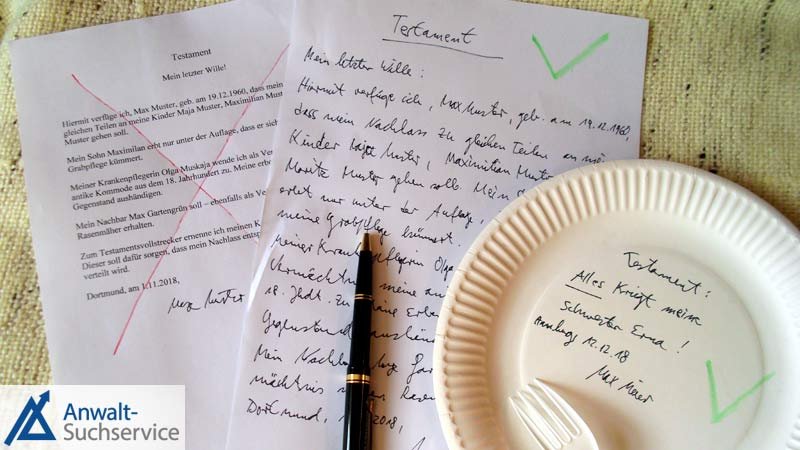 Testament
Mein letzter Wille!
Hiermit verfüge ich, Max Muster, geb. am 19.12.1960, dass mein
gleichen Teilen an meine Kinder Maja Muster, Maximilian Must
Muster gehen soll.
Mein Sohn Maximilan erbt nur unter der Auflage, dass er sich
Grabpflege kümmert.
Meiner Krankenpflegerin Olga Muskaja wende ich als Ve
antike Kommode aus dem 18. Jahrhundert zu. Meine erbe
Gegenstand aushändigen.
Mein Nachbar Max Gartengrün soll – ebenfalls als Ve
Rasenmäher erhalten.
Zum Testamentsvollstrecker ernenne ich meinen K
Dieser soll dafür sorgen, dass mein Nachlass entsp
verteilt wird.
Dortmund, am 1.11.2018,
Max Muster
Testament
Mein letzter Wille:
Hiermit verfüge ich, Max Muster, geb. am 19.12.1960,
dass mein Nachlass zu gleichen Teilen an mei
Kinder Maja Muster, Maximilian Muster
Moritz Muster gehen soll. Mein
erbt nur unter der Auflage,
meine Grabpflege kümmert.
Meiner Krankenpflegerin Olga
Vermächtnis meine an
18. Jhdt. zu. Meine Erbe
Gegenstand aushän
Mein Nachbar Gar
mächtnis Rasen
Dortmund, 2018,
Testament:
Alles kriegt meine
Schwester Erna!
Arnsberg 12.12.18
Max Meier
Anwalt-
Suchservice